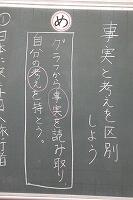 事実と考えを区別
しよう
め
グラフから事実を読み取り、
自分の考えを持とう。
① 日本に来る外国人旅行者